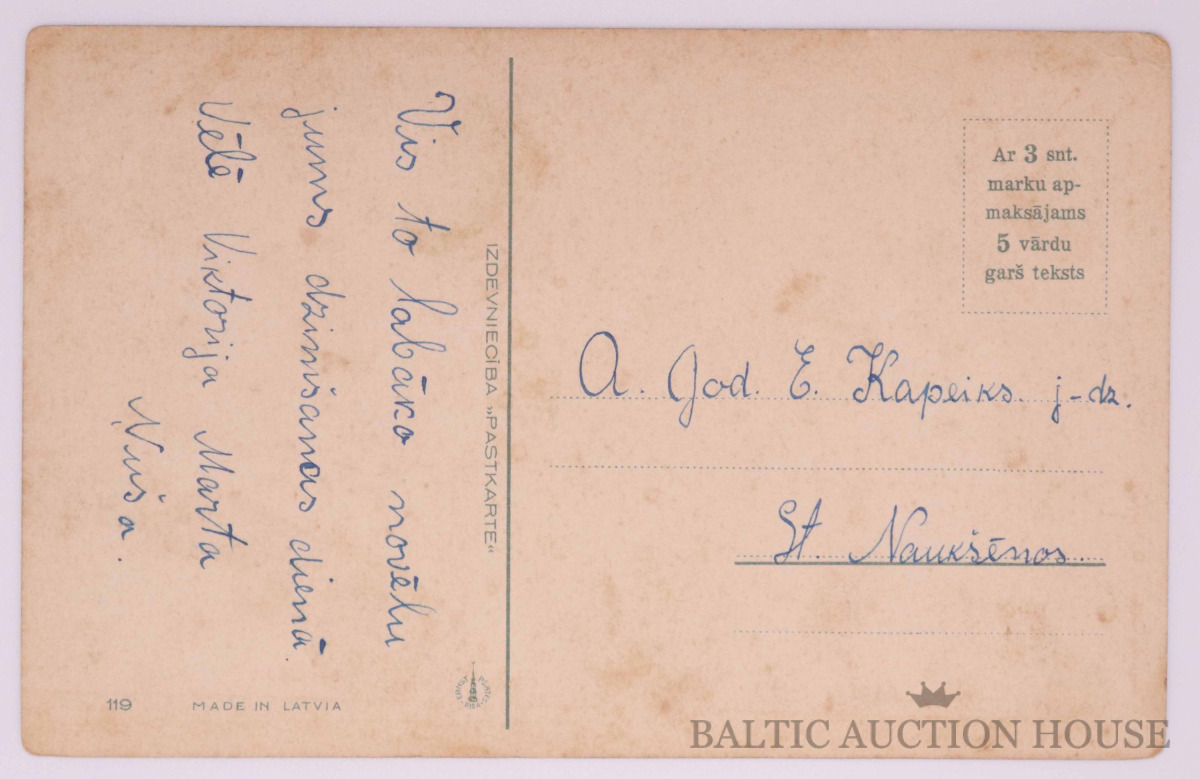 Vis to labāko novēlu
jums dzimšanas dienā.
Vēlē Viktorija Marta
Ņuša.
119
MADE IN LATVIA
IZDEVNIECĪBA „PASTKARTE“
Ar 3 snt.
marku ap-
maksājams
5 vārdu
garš teksts
A. God. E. Kapeiks. j-dz.
St. Naukšēnos.
BALTIC AUCTION HOUSE